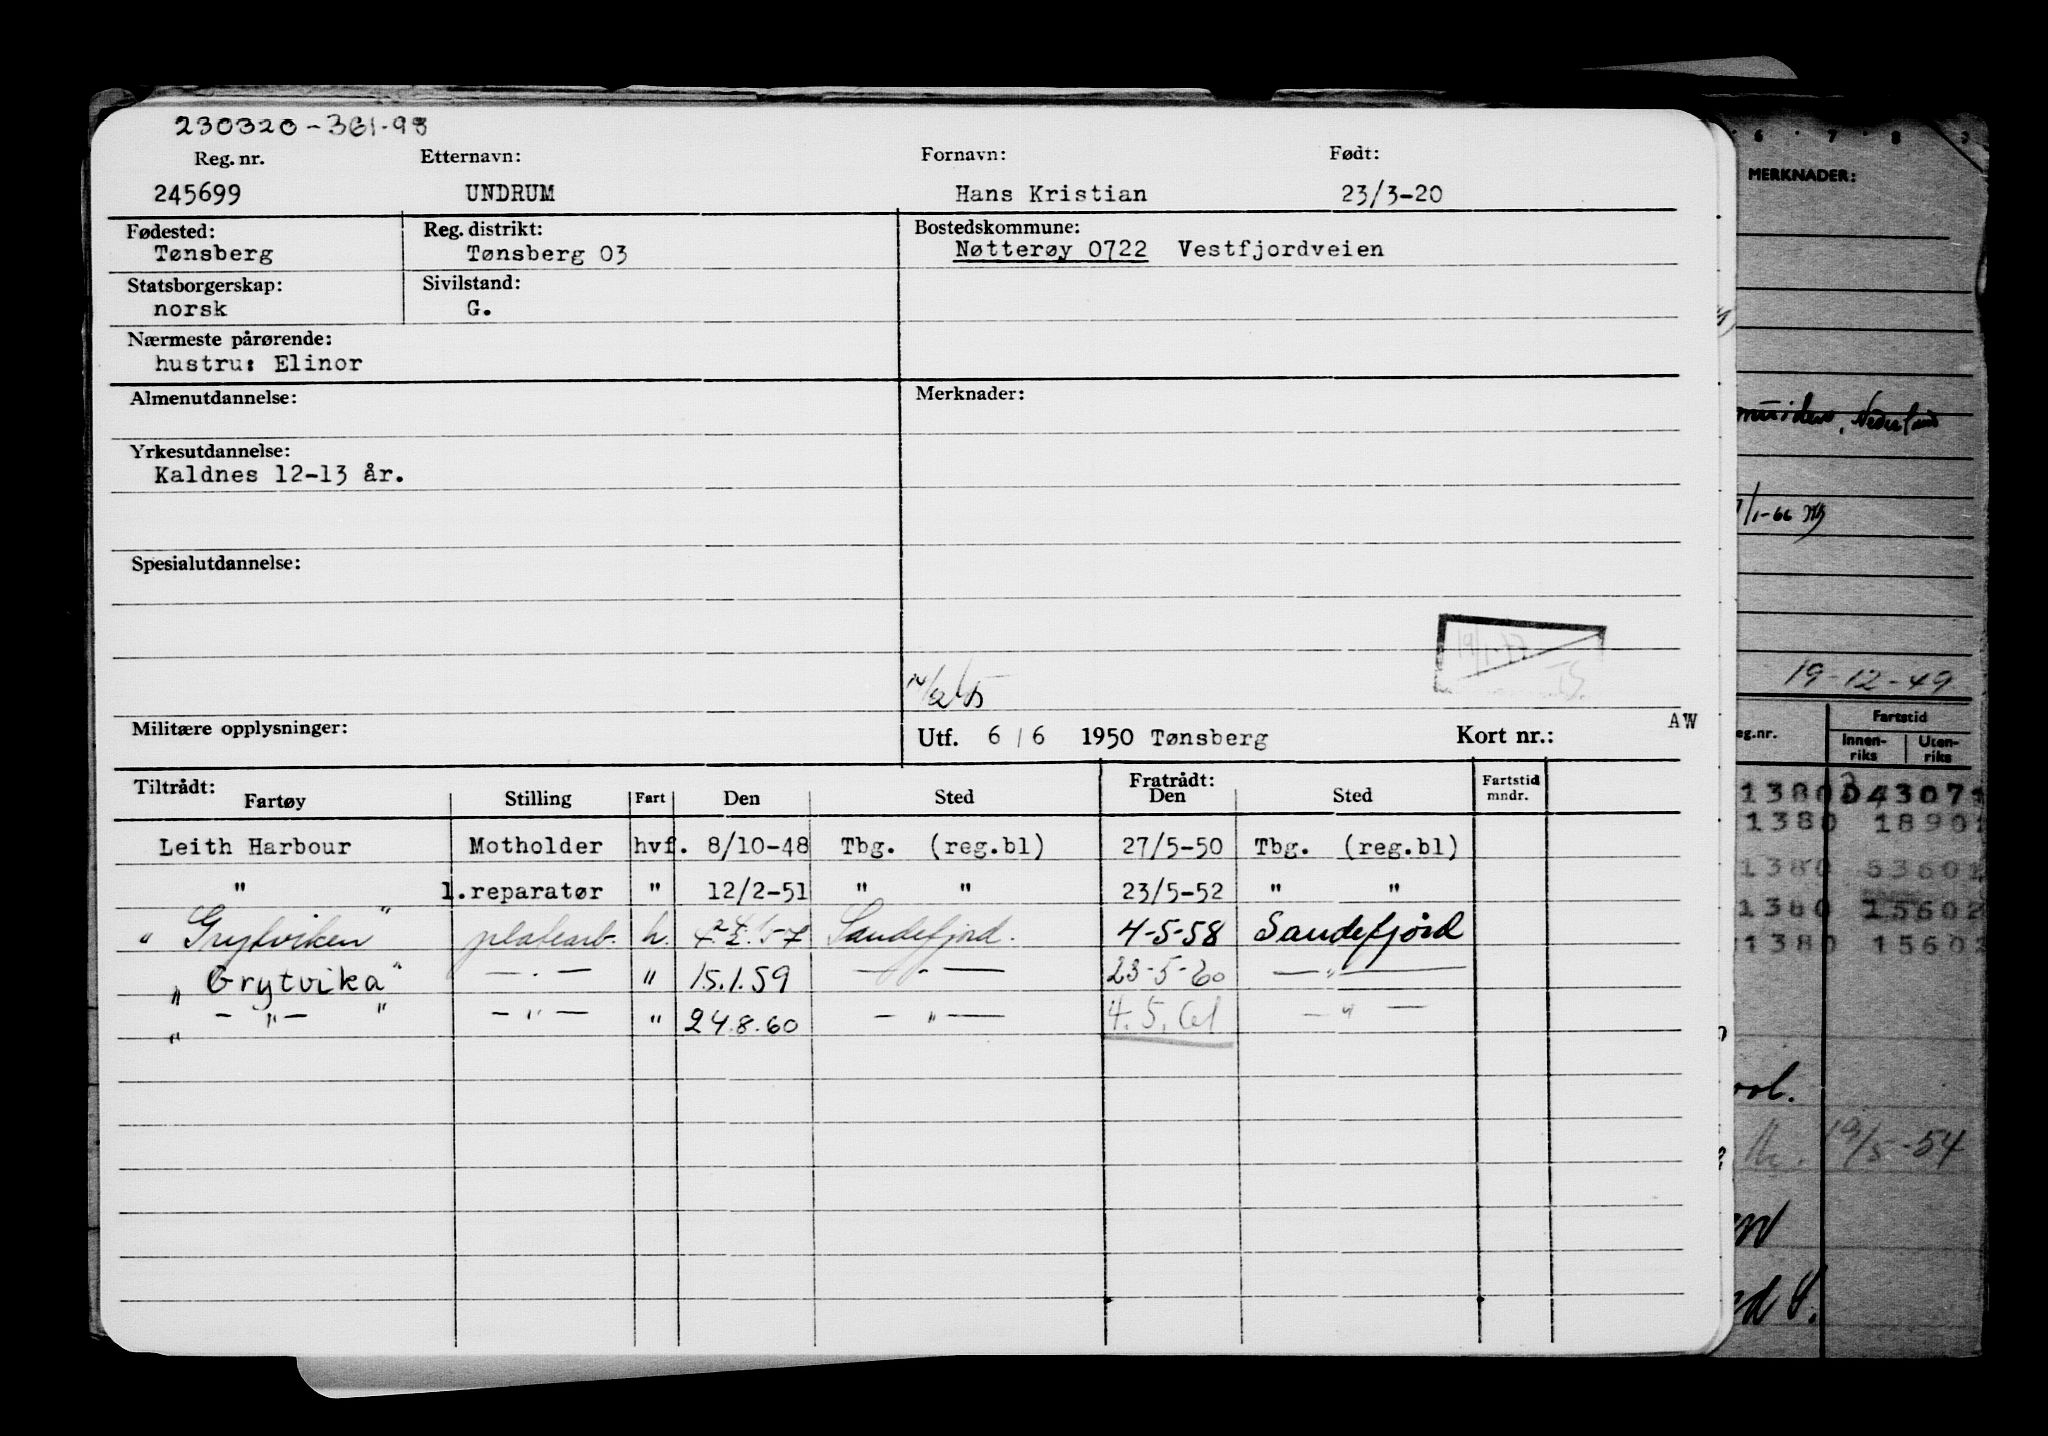 230320-361-98
Reg. nr. Etternavn: Fornavn: Født:
245699 UNDRUM Hans Kristian 23/3-20
Fødested: Reg. distrikt: Bostedskommune:
Tønsberg Tønsberg 03 Nøtterøy 0722 Vestfjordveien
Statsborgerskap: Sivilstand:
norsk G.
Nærmeste pårørende:
hustru: Elinor
Almenutdannelse: Merknader:
Yrkesutdannelse:
Kaldnes 12-13 år.
Spesialutdannelse:
Militære opplysninger: Utf. 6/6 1950 Tønsberg Kort nr.: AW
Tiltrådt: Fratrådt:
Fartøy Stilling Fart Den Sted Den Sted Fartstid mndr.
Leith Harbour Motholder hvf. 8/10-48 Tbg. (reg.bl) 27/5-50 Tbg. (reg.bl)
" 1.reparatør " 12/2-51 " " 23/5-52 " "
"Grytviken" platearb. h. Sandefjord. 4-5-58 Sandefjord
"Grytvika" — . — " 15.1.59 — " — 23-5-60 — " —
" — " — " — " — " 24.8.60 — " — 4.5.61 — " —
6 7 8 9
MERKNADER:
Nederland
1/1-66
19-12-49
eg.nr. Fartstid
Innenriks Utenriks
1380 18901
1380 53602
1380 15602
1380 15602
19/5-54